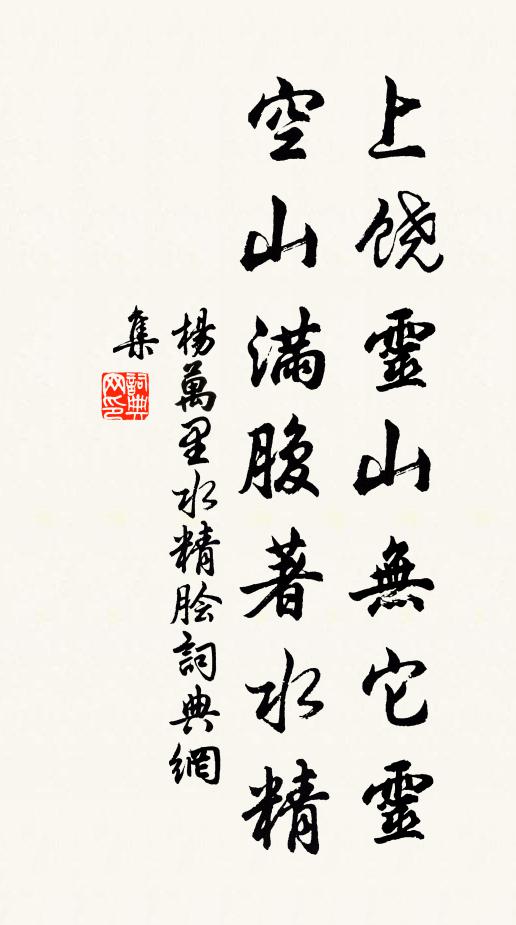 上饶靈山無它靈
空山滿腹著水精
楊萬里水精脍詞典網
集
詞典
网印